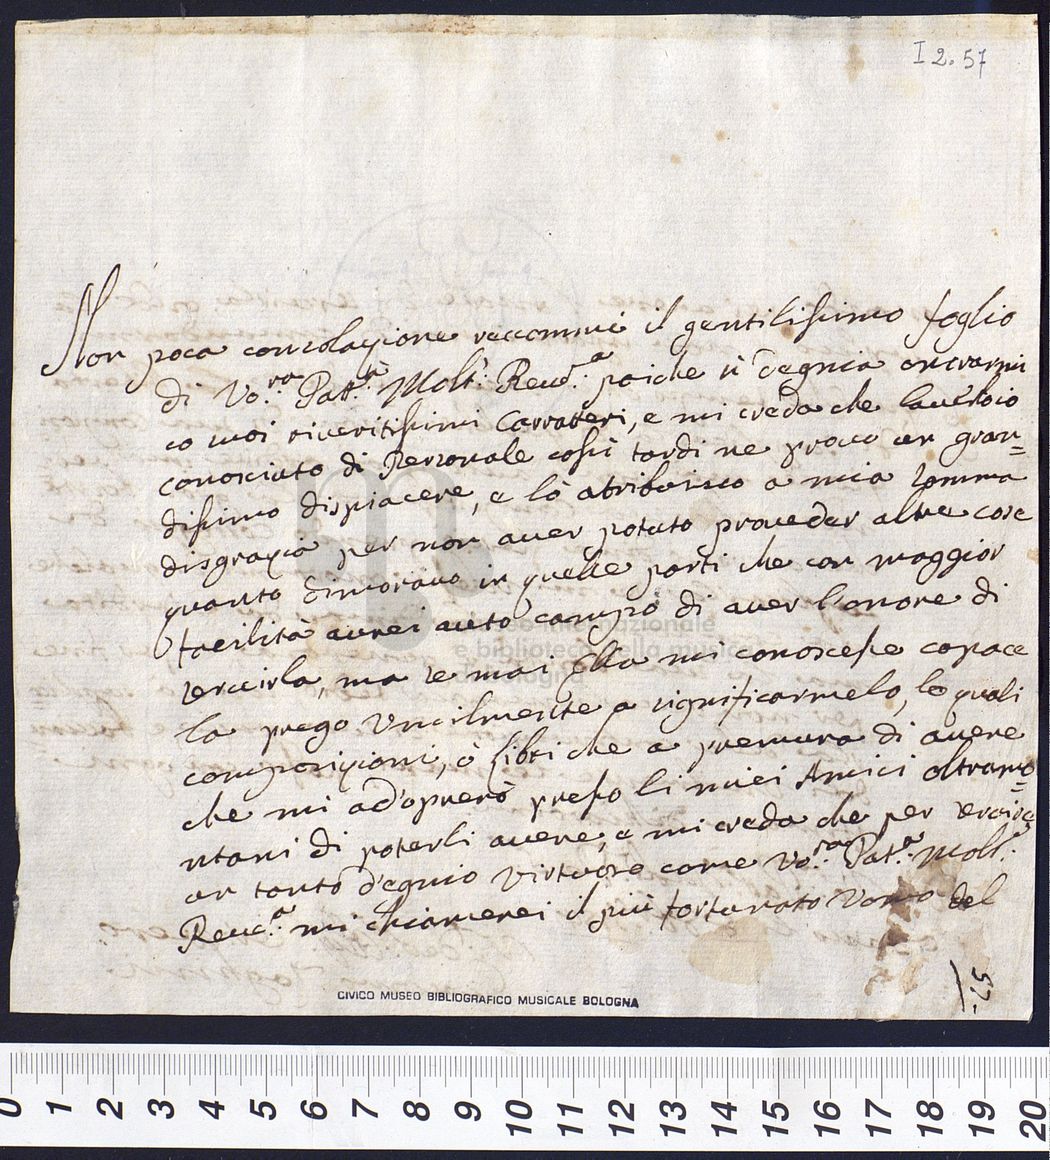 I 2. 57
Non poca consolazione reccommi il gentilissimo foglio
di Vo.ra Pat.a Molt. Reu.a poiche si degnia onorarmi
co suoi riueritissimi Carratteri, e mi creda che l'auerlo io
conosciuto di Personale cossi tardi ne prouo un gran=
dissimo dispiacere, e lò atribuisco a mia somma
disgrazia per non auer potuto proueder altre cose
quanto dimorauo in quelle parti che con maggior
facilità aurei auto campo di auer l'onore di
seruirla, ma se mai Ella mi conoscesse capace
la prego vmilmente a significarmelo, le quali
composizioni, ò libri che a premura di auere
che mi ad'oprerò presso li miei Amici oltramo=
ntani di poterli auere, e mi creda che per seruire
un tanto d'egnio Virtuoso come Vo.ra Pat.a Molt.
Reu.a mi chiamerei il più fortunato Vomo del
57.
CIVICO MUSEO BIBLIOGRAFICO MUSICALE BOLOGNA
0 1 2 3 4 5 6 7 8 9 10 11 12 13 14 15 16 17 18 19 20